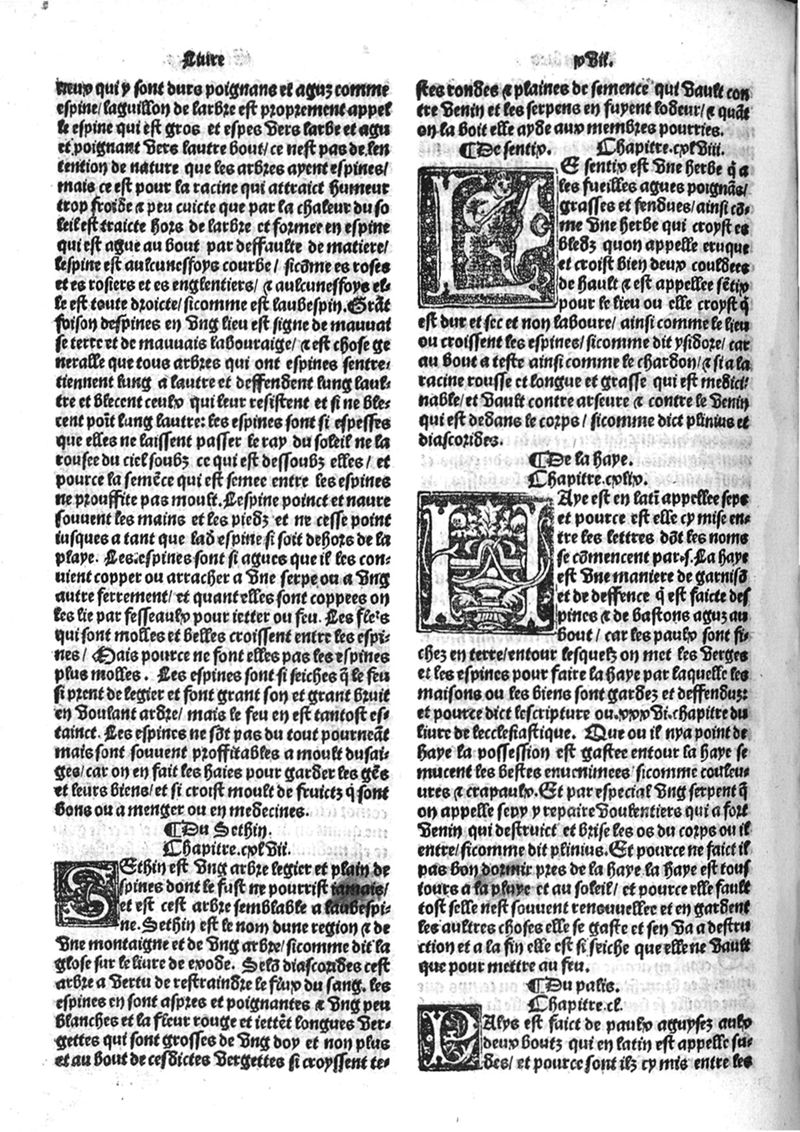 Liure
neux qui y sont durs poignans et aguz comme
espine/ laguillon de larbre est proprement appel
le espine qui est gros et espes vers larbe et agu
et poignant vers lautre bout/ ce nest pas de len
tention de nature que les arbres ayent espines/
mais ce est pour la racine qui attraict humeur
trop froide ⁊ peu cuicte que par la chaleur du so
leil est traicte hors de larbre et formee en espine
qui est ague au bout par deffaulte de matiere/
lespine est aulcunesfoys courbe/ sicõme es roses
et es rosiers et es englentiers/ ⁊ aulcunesfoys el-
le est toute droicte/ sicomme est laubespin. Grãt
foison despines en vng lieu est signe de mauuai
se terre et de mauuais labouraige/ ⁊ est chose ge
neralle que tous arbres qui ont espines sentre-
tiennent lung a lautre et deffendent lung laul-
tre et blecent ceulx qui leur resistent et si ne ble-
cent poĩt lung lautre: les espines sont si espesses
que elles ne laissent passer le ray du soleil ne la
rousee du ciel soubz ce qui est dessoubz elles/ et
pource la semẽce qui est semee entre les espines
ne prouffite pas moult. Lespine poinct et naure
souuent les mains et les piedz et ne cesse point
iusques a tant que lad espine si soit dehors de la
playe. Les espines sont si agues que il les con-
uient copper ou arracher a vne serpe ou a vng
autre ferrement/ et quant elles sont coppees on
les lie par fesseaulx pour ietter ou feu. Les fle's
qui sont molles et belles croissent entre les espi-
nes/ Mais pource ne font elles pas les espines
plus molles. Les espines sont si seiches q̃ le feu
si prent de legier et font grant son et grant bruit
en voulant ardre/ mais le feu en est tantost es-
tainct. Les espines ne sõt pas du tout pourneãt
mais sont souuent proffitables a moult dusai-
ges/ car on en fait les haies pour garder les gẽs
et leurs biens/ et si croist moult de fruictz q̃ sont
bons ou a menger ou en medecines.
¶Du Sethin.
Chapitre.cxlvii.
SEthin est vng arbre legier et plain de
spines dont le fust ne pourrist iamais/
et est cest arbre semblable a laubespi-
ne. Sethin est le nom dune region ⁊ de
vne montaigne et de vng arbre/ sicomme dit la
glose sur le liure de exode. Selõ diascorides cest
arbre a vertu de restraindre le flux du sang. les
espines en sont aspres et poignantes ⁊ vng peu
blanches et la fleur rouge et iettẽt longues ver-
gettes qui sont grosses de vng doy et non plus
et au bout de cesdictes vergettes si croyssent te-
xvii.
stes rondes ⁊ plaines de semence qui vault con
tre venin et les serpens en fuyent lodeur/ ⁊ quãt
on la boit elle ayde aux membres pourries.
¶De sentix. Chapitre.cxlviii.
LE sentix est vne herbe q̃ a
les fueilles agues poignãs/
grasses et fendues/ ainsi cõ-
me vne herbe qui croyst es
bledz quon appelle eruque
et croist bien deux couldees
de hault ⁊ est appellee sẽtix
pour le lieu ou elle croyst q̃
est dur et sec et non laboure/ ainsi comme le lieu
ou croissent les espines/ sicomme dit ysidore/ car
au bout a teste ainsi comme le chardon/ ⁊ si a la
racine rousse et longue et grasse qui est medici
nable/ et vault contre arseure ⁊ contre le venin
qui est dedans le corps/ sicomme dict plinius et
diascorides.
¶De la haye.
Chapitre.cxlix.
HAye est en latĩ appellee seps
et pource est elle cy mise en-
tre les lettres dõt les noms
se cõmencent par.s. La haye
est vne maniere de garnisõ
et de deffence q̃ est faicte des
pines ⁊ de bastons aguz au
bout/ car les paulx sont fi-
chez en terre/ entour lesquelz on met les verges
et les espines pour faire la haye par laquelle les
maisons ou les biens sont gardez et deffenduz:
et pource dict lescripture ou.xxxvi.chapitre du
liure de lecclesiastique. Que ou il nya point de
haye la possession est gastee entour la haye se
mucent les bestes enuenimees/ sicomme couleu-
ures ⁊ crapaulx. Et par especial vng serpent q̃
on appelle sepy y repaire voulentiers qui a fort
venin qui destruict et brise les os du corps ou il
entre/ sicomme dit plinius. Et pource ne faict il
pas bon dormir pres de la haye la haye est tous
iours a la pluye et au soleil/ et pource elle fault
tost selle nest souuent renouuellee et en gardent
les aultres choses elle se gaste et sen va a destru
ction et a la fin elle est si seiche que elle ne vault
que pour mettre au feu.
¶Du palis.
Chapitre.cl.
PAlys est faict de paulx aguysez aulx
deux boutz qui en latin est appelle su-
des/ et pource sont ilz cy mis entre les